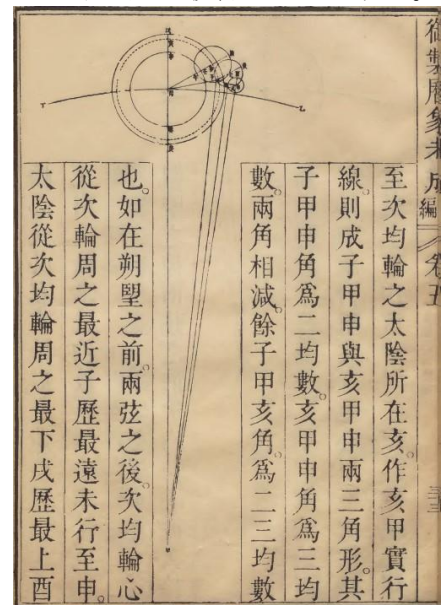 御製曆象考成
編
卷五
至次均輪之太陰所在亥。作亥甲實行
線。則成子甲申與亥甲申兩三角形。其
子甲申角爲二均數。亥甲申角爲三均
數。兩角相減。餘子甲亥角。爲二三均數
也。如在朔望之前。兩弦之後。次均輪心
從次輪周之最近子歷最遠未行至申。
太陰從次均輪周之最下戌歷最上酉